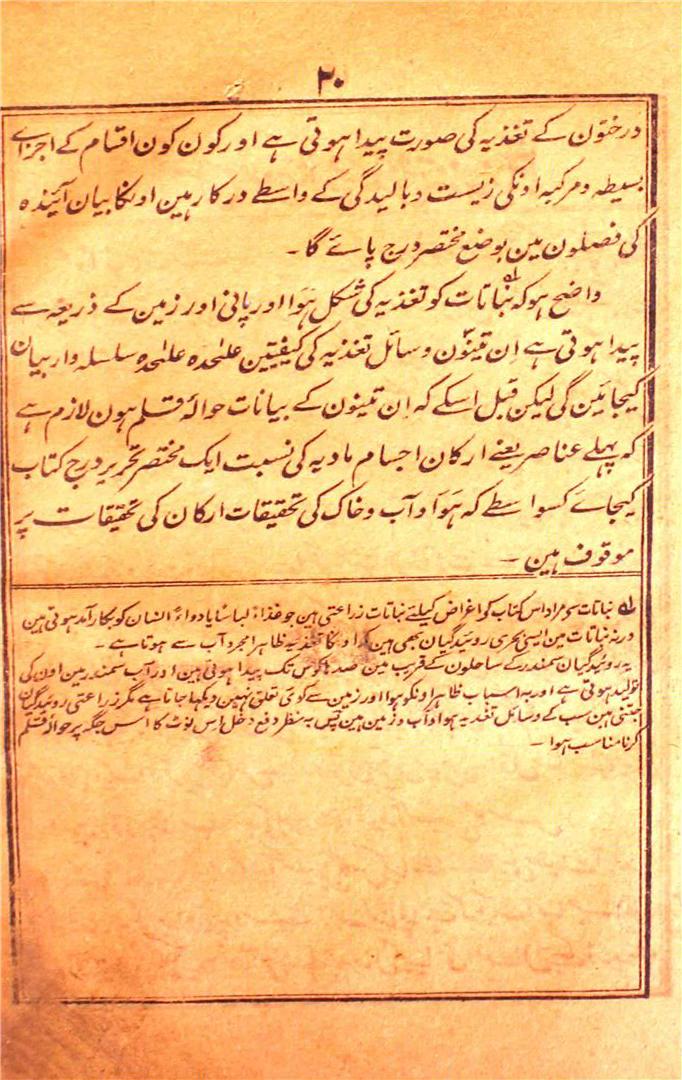 ۲۰
درختون کے تغذیہ کی صورت پیدا ہوتی ہے اور کون کون اقسام کے اجزاے
بسیطہ و مرکبہ اونکی زیست و بالیدگی کے واسطے درکار ہین اونکا بیان آئیندہ
کی فصلون مین بوضع مختصر درج پاے گا ۔
واضح ہو کہ نباتات کو تغذیہ کی شکل ہوا اور پانی اور زمین کے ذریعہ سے
پیدا ہوتی ہے اِن تینون وسائل تغذیہ کی کیفیتین علیٰحدہ علیٰحدہ سلسلہ وار بیان
کیجائین گی لیکن قبل اسکے کہ اِن تینون کے بیانات حوالۂ قلم ہون لازم ہے
کہ پہلے عناصر یعنے ارکان اجسام مادیہ کی نسبت ایک مختصر تحریر درج کتاب
کیجاے کسواسطے کہ ہَوا و آب و خاک کی تحقیقات ارکان کی تحقیقات پر
موقوف ہین ۔
لہ نباتات سی مراد اس کتاب کو اغراض کیلئے نباتات زراعتی ہین جو غذاءً لباسًا یا دواءً انسان کو بکارآمد ہوتی ہین
ورنہ نباتات مین ایسی بحری روئیدگیان بھی ہین کہ اونکا تغذیہ ظاہرا مجرد آب سے ہوتا ہے ۔
یہ روئیدگیان سمندر کے ساحلون کے قریب مین صدہا کوس تک پیدا ہوتی ہین اور آب سمندر مین اون کی
تولید ہوتی ہے اور بہ اسباب ظاہر اونکو ہوا اور زمین سے کوئی تعلق نہین دیکھا جاتا ہے مگر زراعتی روئیدگیان
جتنی ہین سب کے وسائل تغذیہ ہوا و آب و زمین ہین پس بہ نظر دفع دخل اِس نوٹ کا اس جگہ پر حوالۂ قلم
کرنا مناسب ہوا ۔